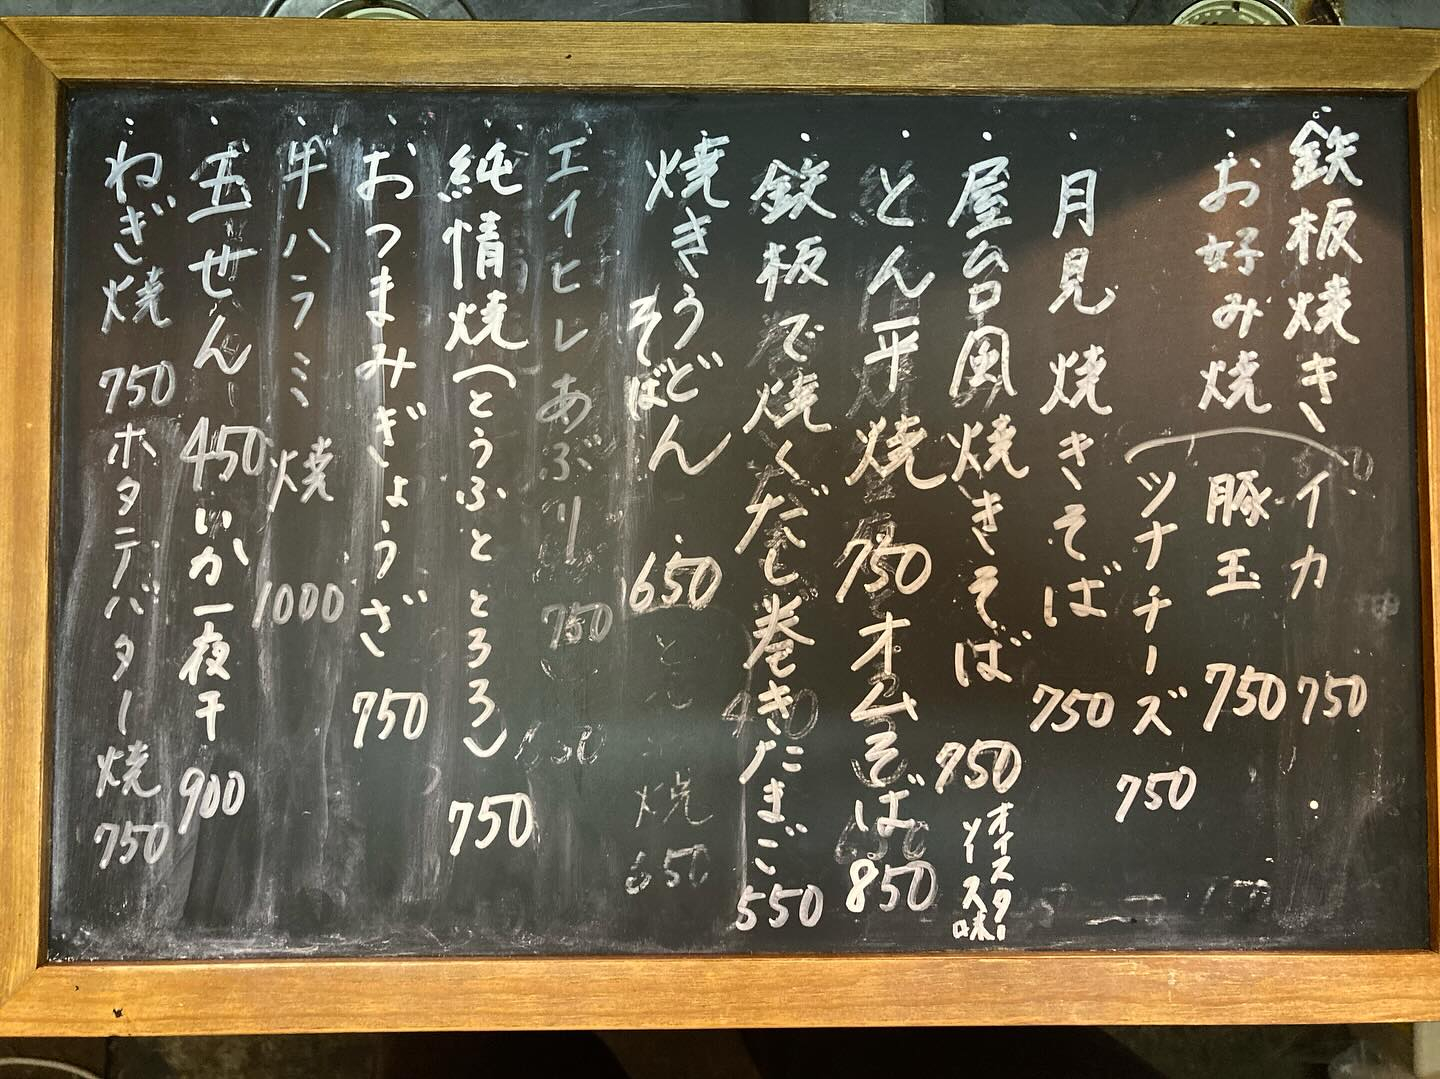 鉄板焼き
・お好み焼
イカ 750
豚玉 750
ツナチーズ 750
・月見焼きそば 750
・屋台風焼きそば 750
オイスターソース味
・とん平焼 750 オムそば 850
・鉄板で焼くだし巻きたまご 550
・焼きうどん
そば ・650
焼 650
・エイヒレあぶり 750
・純情焼(とうふととろろ) 750
・おつまみぎょうざ 750
・牛ハラミ焼 1000
・五せん 450 いか一夜干 900
・ねぎ焼 750 ホタテバター焼 750